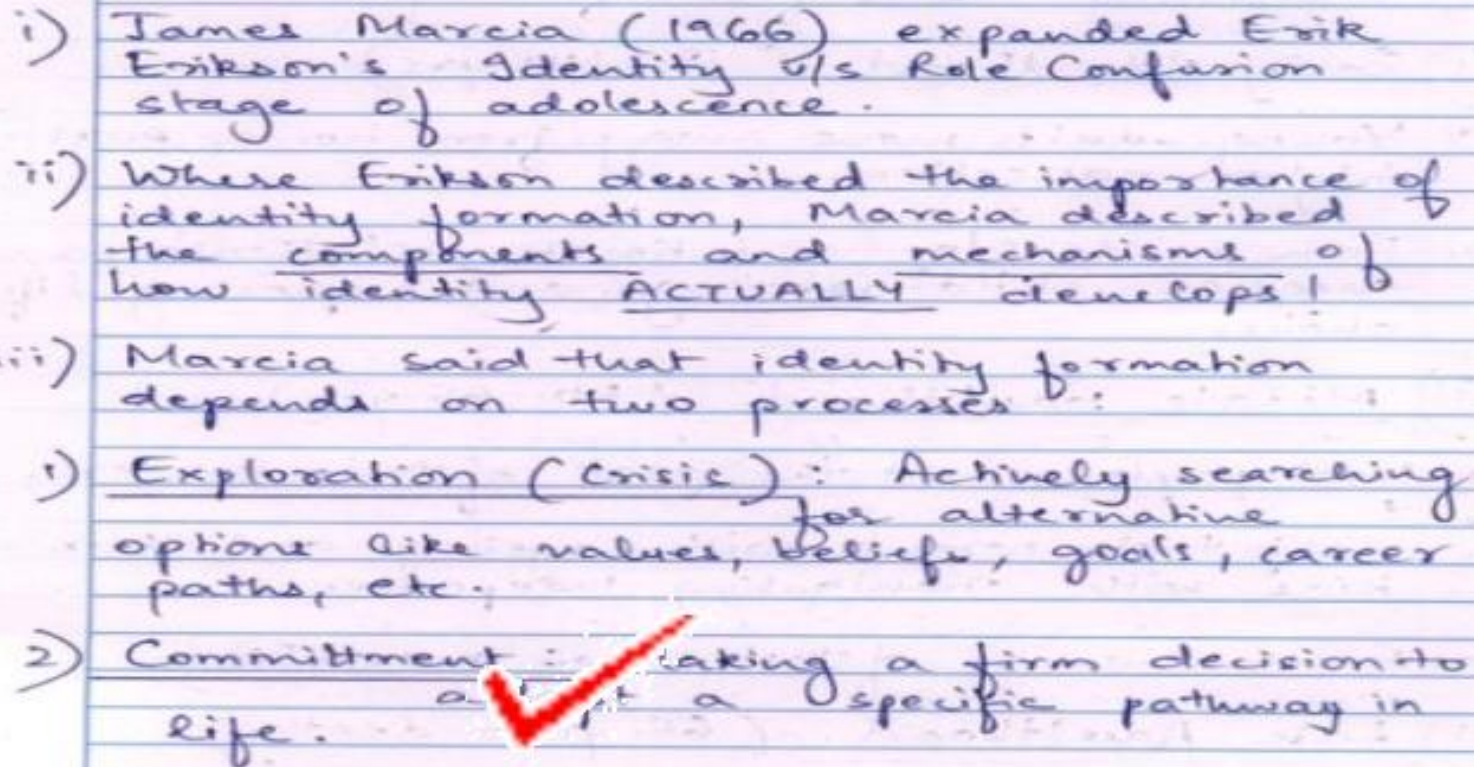 i) James Marcia (1966) expanded Erik
Erikson's Identity v/s Role Confusion
stage of adolescence.
ii) Where Erikson described the importance of
identity formation, Marcia described
the components and mechanisms of
how identity ACTUALLY develops!
iii) Marcia said that identity formation
depends on two processes :
1) Exploration (Crisis) : Actively searching
for alternative
options like values, beliefs, goals, career
paths, etc.
2) Committment : taking a firm decision to
a specific pathway in
life.